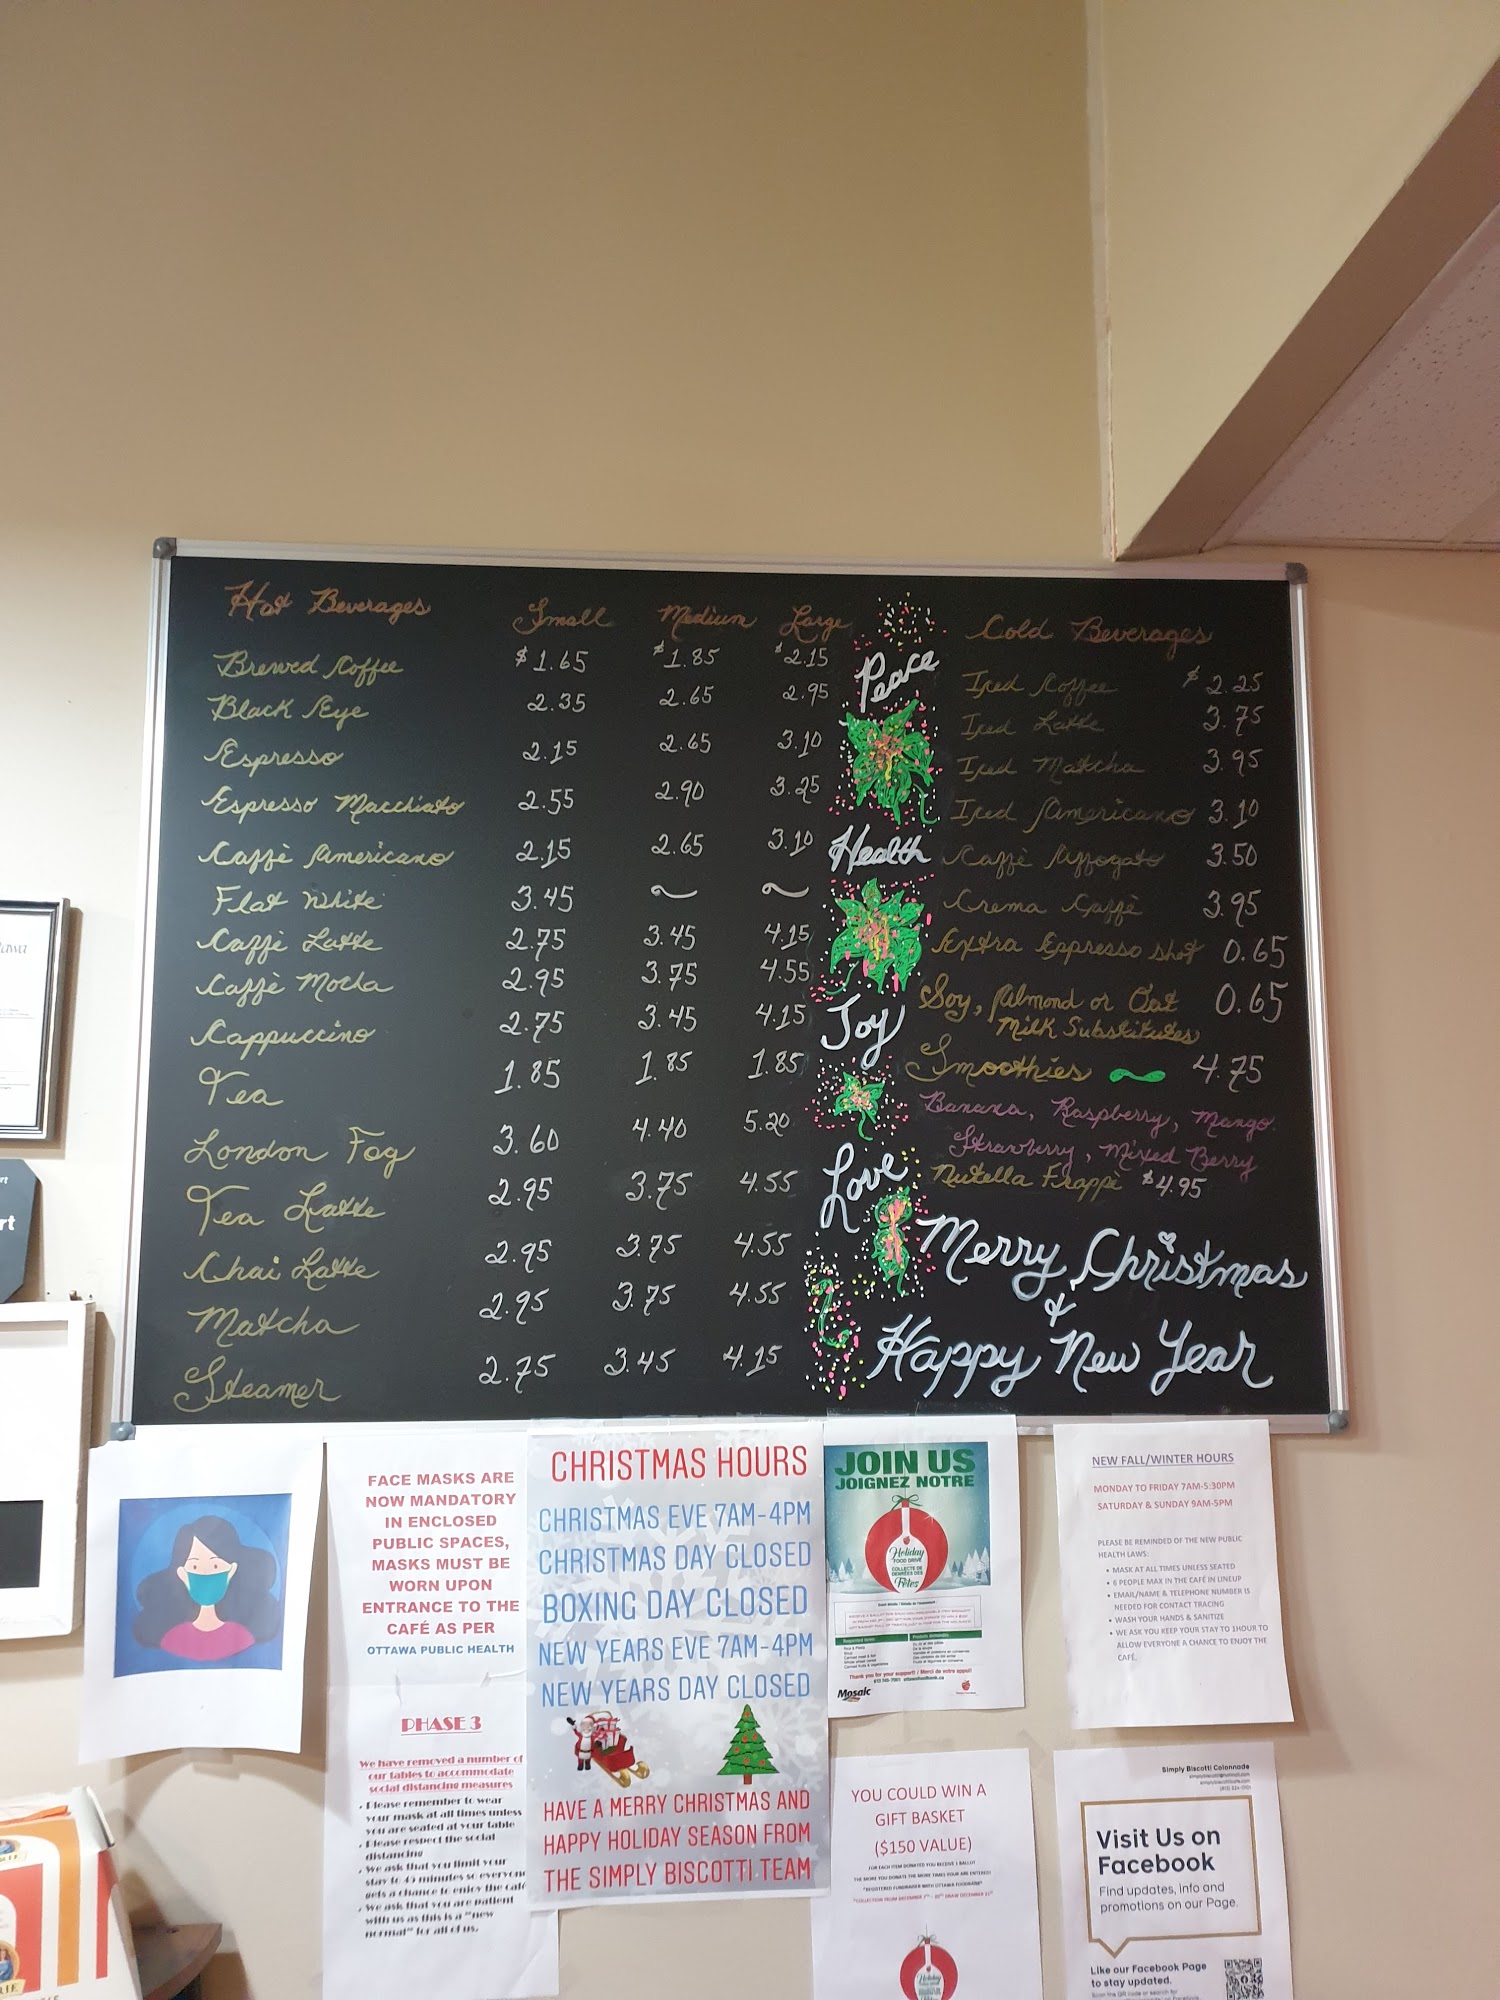 Hot Beverages Small Medium Large
Brewed Coffee $1.65 $1.85 $2.15
Black Eye 2.35 2.65 2.95
Espresso 2.15 2.65 3.10
Espresso Macchiato 2.55 2.90 3.25
Caffè Americano 2.15 2.65 3.10
Flat White 3.45 ~ ~
Caffè Latte 2.75 3.45 4.15
Caffè Mocha 2.95 3.75 4.55
Cappuccino 2.75 3.45 4.15
Tea 1.85 1.85 1.85
London Fog 3.60 4.40 5.20
Tea Latte 2.95 3.75 4.55
Chai Latte 2.95 3.75 4.55
Matcha 2.95 3.75 4.55
Steamer 2.75 3.45 4.15
Peace
Health
Joy
Love
Cold Beverages
Iced Coffee $2.25
Iced Latte 3.75
Iced Matcha 3.95
Iced Americano 3.10
Caffè Affogato 3.50
Crema Caffè 3.95
Extra Espresso shot 0.65
Soy, Almond or Oat 0.65
Milk Substitutes
Smoothies ~ 4.75
Banana, Raspberry, Mango
Strawberry, Mixed Berry
Nutella Frappè $4.95
Merry Christmas
&
Happy New Year
FACE MASKS ARE
NOW MANDATORY
IN ENCLOSED
PUBLIC SPACES,
MASKS MUST BE
WORN UPON
ENTRANCE TO THE
CAFÉ AS PER
OTTAWA PUBLIC HEALTH
PHASE 3
We have removed a number of
our tables to accommodate
social distancing measures
• Please remember to wear
your mask at all times unless
you are seated at your table
• Please respect the social
distancing
• We ask that you limit your
stay to 45 minutes so everyone
gets a chance to enjoy the café
• We ask that you are patient
with us as this is a "new
normal" for all of us.
CHRISTMAS HOURS
CHRISTMAS EVE 7AM-4PM
CHRISTMAS DAY CLOSED
BOXING DAY CLOSED
NEW YEARS EVE 7AM-4PM
NEW YEARS DAY CLOSED
HAVE A MERRY CHRISTMAS AND
HAPPY HOLIDAY SEASON FROM
THE SIMPLY BISCOTTI TEAM
JOIN US
JOIGNEZ NOTRE
Holiday
FOOD DRIVE
COLLECTE DE
DENRÉES DES
Fêtes
Thank you for your support! / Merci de votre appui!
Mosaic
YOU COULD WIN A
GIFT BASKET
($150 VALUE)
FOR EACH ITEM DONATED YOU RECEIVE 1 BALLOT
THE MORE YOU DONATE THE MORE TIMES YOUR ARE ENTERED!
*REGISTERED FUNDRAISER WITH OTTAWA FOODBANK*
Holiday
NEW FALL/WINTER HOURS
MONDAY TO FRIDAY 7AM-5:30PM
SATURDAY & SUNDAY 9AM-5PM
PLEASE BE REMINDED OF THE NEW PUBLIC
HEALTH LAWS:
• MASK AT ALL TIMES UNLESS SEATED
• 6 PEOPLE MAX IN THE CAFÉ IN LINEUP
• EMAIL/NAME & TELEPHONE NUMBER IS
NEEDED FOR CONTACT TRACING
• WASH YOUR HANDS & SANITIZE
• WE ASK YOU KEEP YOUR STAY TO 1HOUR TO
ALLOW EVERYONE A CHANCE TO ENJOY THE
CAFÉ.
Simply Biscotti Colonnade
Visit Us on
Facebook
Find updates, info and
promotions on our Page.
Like our Facebook Page
to stay updated.